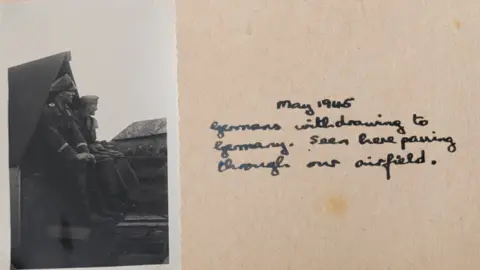 May 1945
Germans withdrawing to
Germany. Seen here passing
through our airfield.